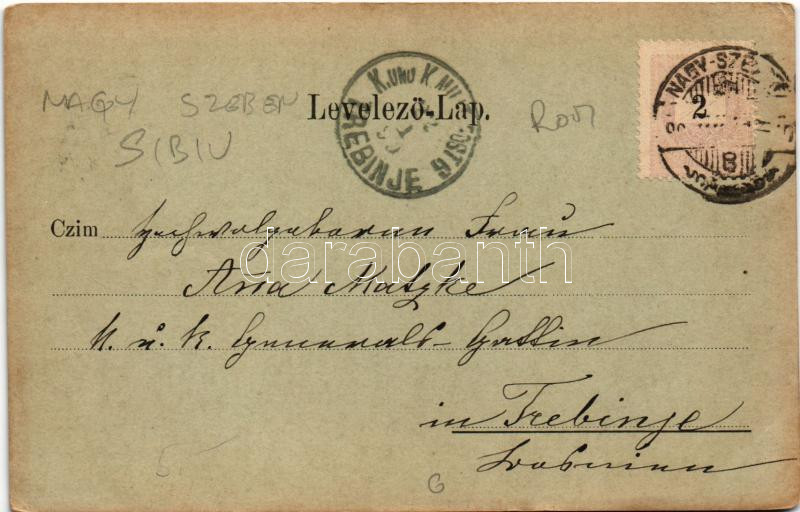 NAGY SZEBEN
SIBIU
Levelező-Lap.
ROM
K. UND K. MIL. POST 6
TREBINJE
NAGY-SZEBEN
2
Czim Hochwolgeboren Frau
Ana Matzke
K. u. K. Generals-Gattin
in Trebinje
Bosnien
5-
G
darabanth